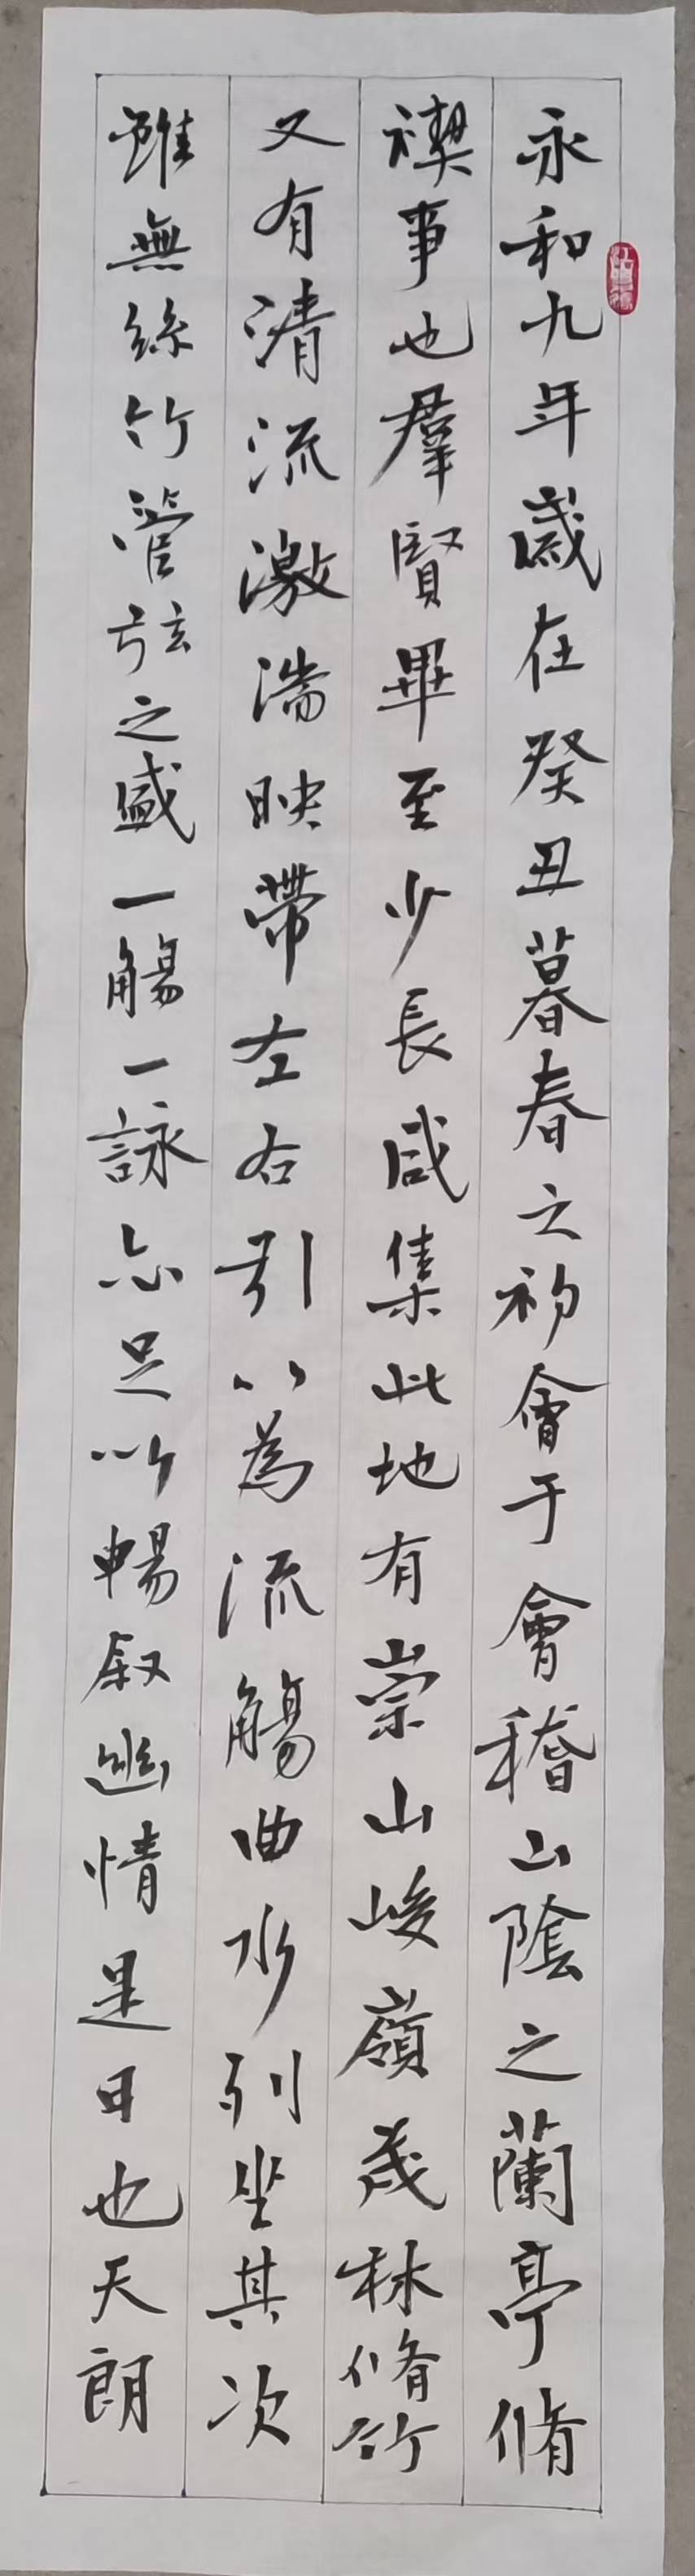 永和九年歲在癸丑暮春之初會于會稽山陰之蘭亭脩
禊事也羣賢畢至少長咸集此地有崇山峻嶺茂林脩竹
又有清流激湍映帶左右引以為流觴曲水列坐其次
雖無絲竹管弦之盛一觴一詠亦足以暢叙幽情是日也天朗